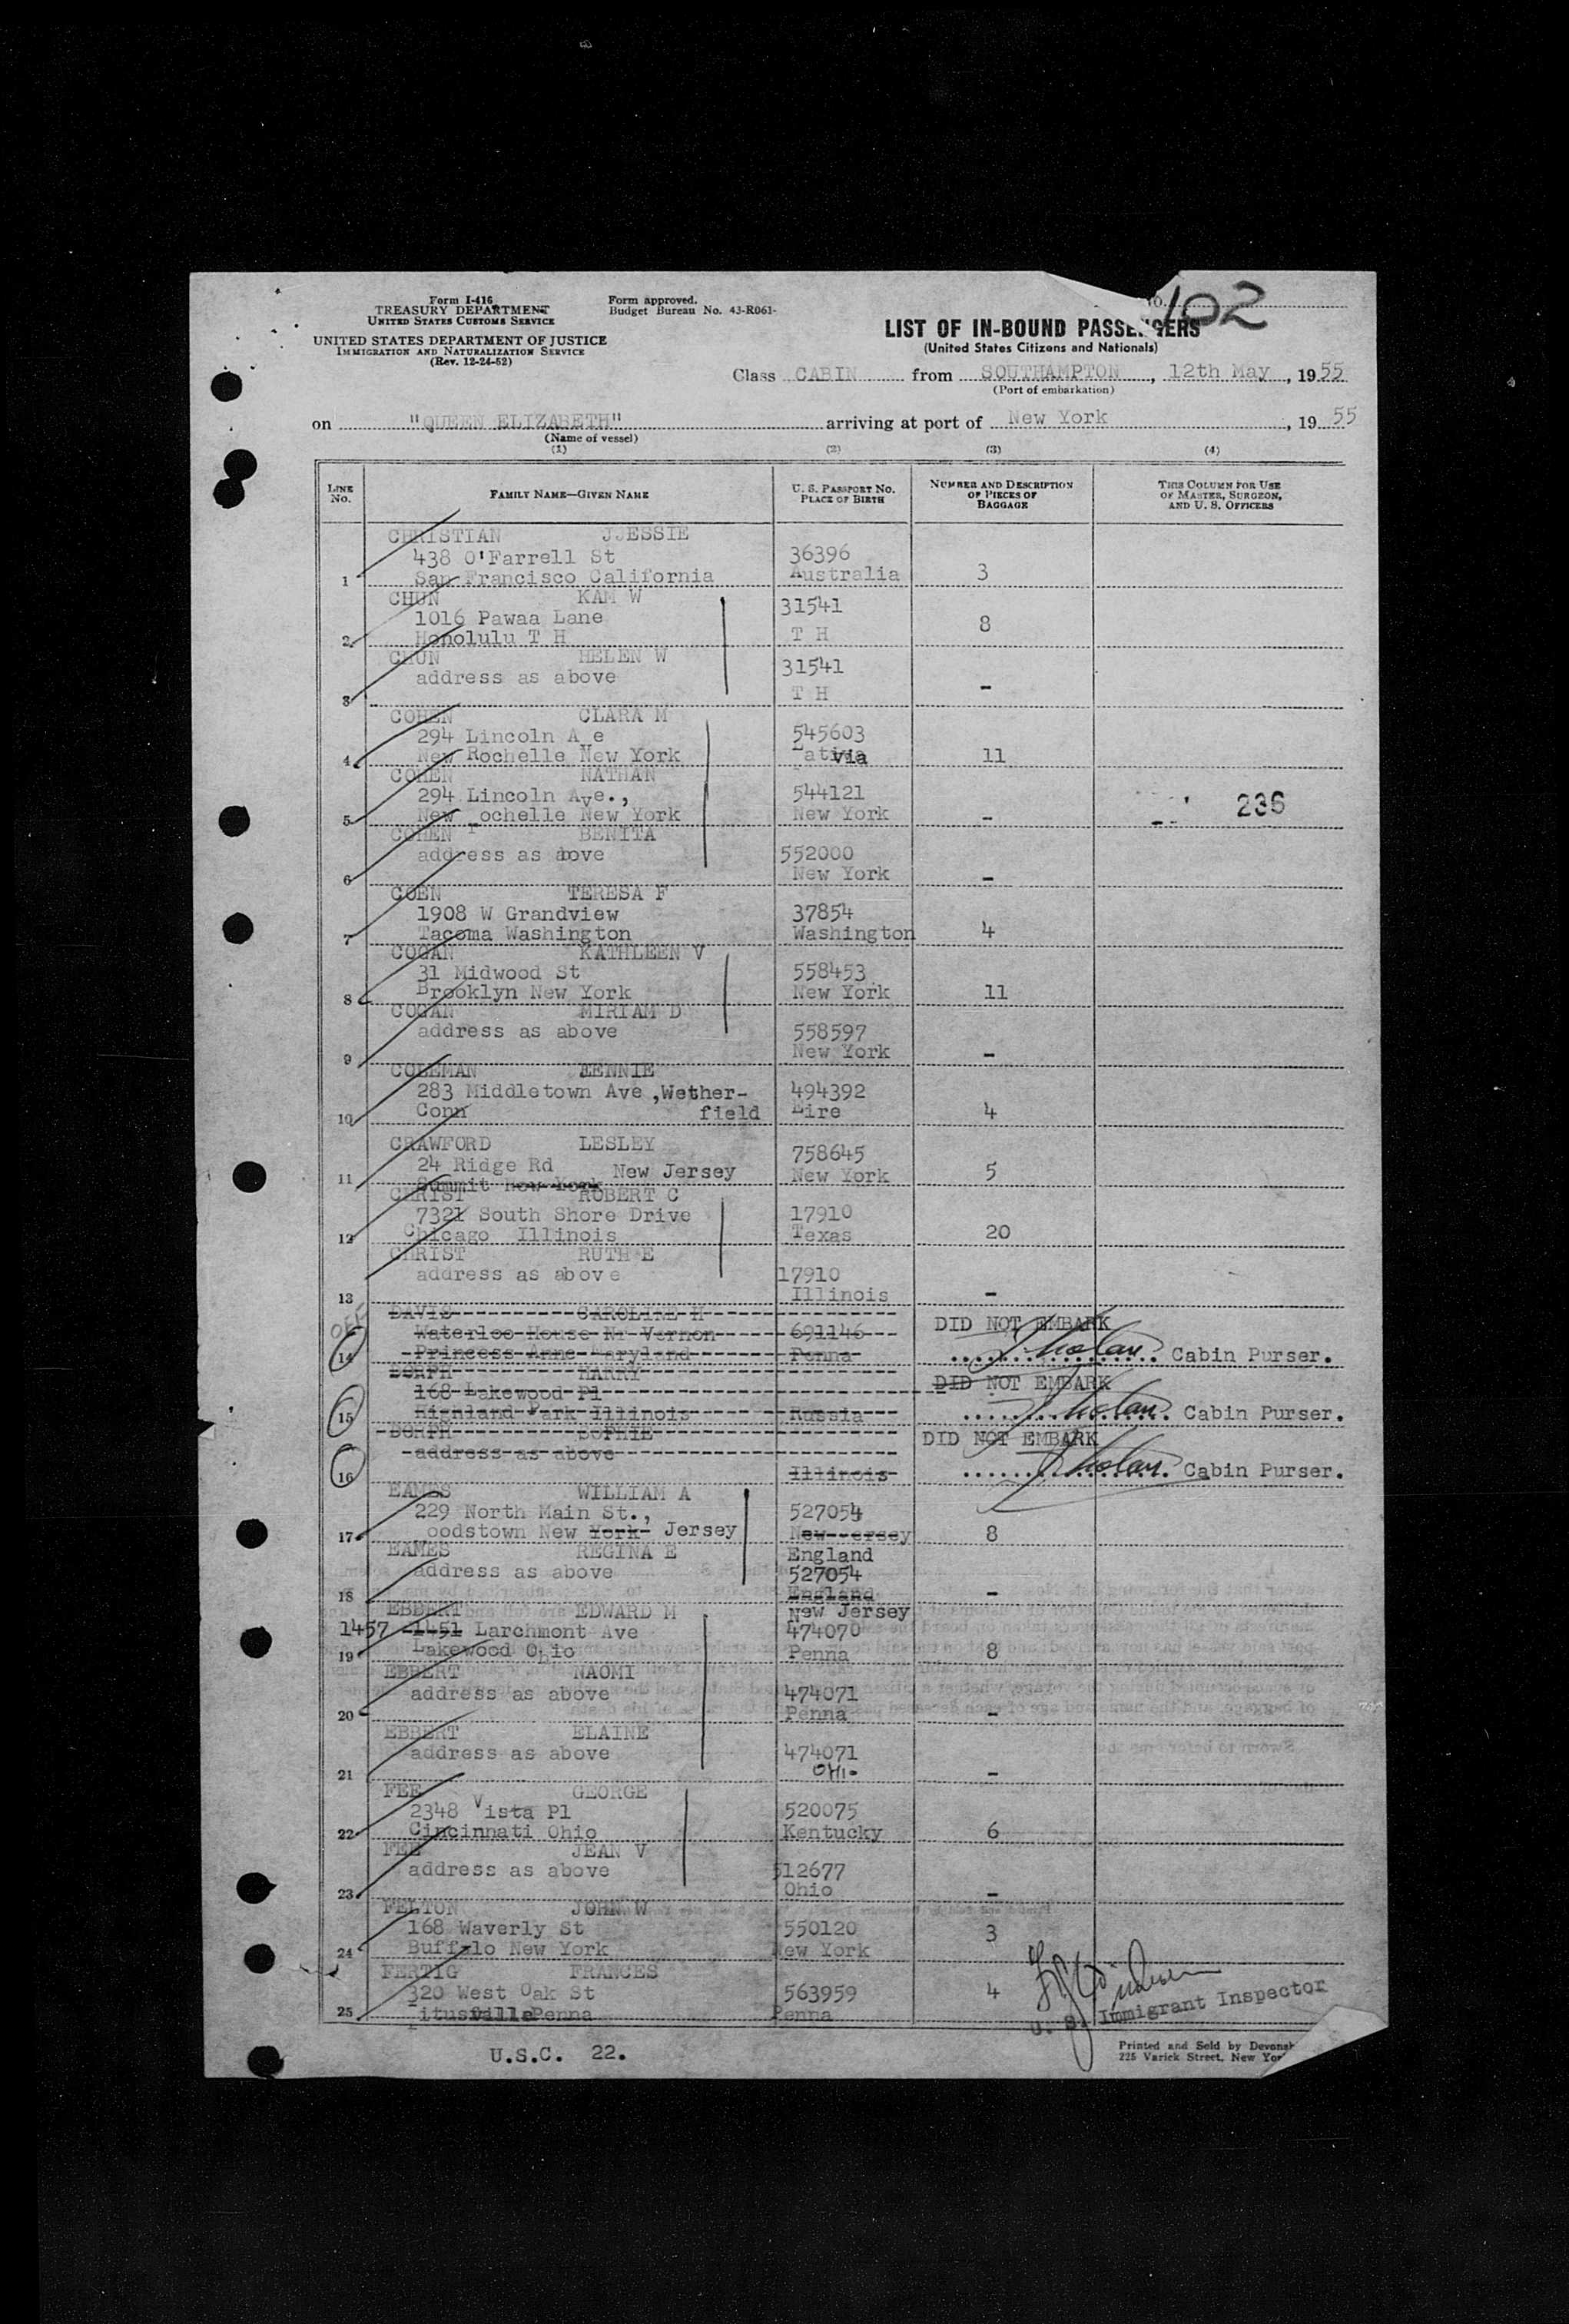 102
Form I-416
TREASURY DEPARTMENT
UNITED STATES CUSTOMS SERVICE
UNITED STATES DEPARTMENT OF JUSTICE
IMMIGRATION AND NATURALIZATION SERVICE
(Rev. 12-24-52)
Form approved.
Budget Bureau No. 43-R061-
LIST OF IN-BOUND PASSENGERS
(United States Citizens and Nationals)
Class CABIN from SOUTHAMPTON, 12th May, 1955
(Port of embarkation)
on "QUEEN ELIZABETH" arriving at port of New York, 1955
(Name of vessel)
(1) (2) (3) (4)
LINE No. FAMILY NAME—GIVEN NAME U. S. PASSPORT NO. PLACE OF BIRTH NUMBER AND DESCRIPTION OF PIECES OF BAGGAGE THIS COLUMN FOR USE OF MASTER, SURGEON, AND U. S. OFFICERS
CHRISTIAN JJESSIE
438 O'Farrell St 36396
1 San Francisco California Australia 3
CHUN KAM W 31541
1016 Pawaa Lane 8
2 Honolulu T H T H
CHUN HELEN W 31541
address as above
3 T H -
COHEN CLARA M
294 Lincoln A e 545603
4 New Rochelle New York Latvia 11
COHEN NATHAN
294 Lincoln Ave., 544121 236
5 New rochelle New York New York -
COHEN BENITA
address as above 552000
6 New York -
COEN TERESA F
1908 W Grandview 37854
7 Tacoma Washington Washington 4
COGAN KATHLEEN V
31 Midwood St 558453
8 Brooklyn New York New York 11
COGAN MIRIAM D
address as above 558597
9 New York -
COLEMAN BENNIE
283 Middletown Ave ,Wether- 494392
10 Conn field Eire 4
CRAWFORD LESLEY 758645
24 Ridge Rd New Jersey 5
11 Summit New York New York
CHRIST ROBERT C
7321 South Shore Drive 17910
12 Chicago Illinois Texas 20
CHRIST RUTH E
address as above 17910
13 Illinois -
OFF
DAVIS CAROLINE H DID NOT EMBARK
Waterloo House Nr Vernon 691146
14 Princess Anne Maryland Penna Cabin Purser.
DORPH HARRY
168 Lakewood Pl DID NOT EMBARK
15 Highland Park Illinois Russia Cabin Purser.
DORPH SOPHIE DID NOT EMBARK
address as above
16 Illinois Cabin Purser.
EAMES WILLIAM A
229 North Main St., 527054
17 oodstown New York Jersey New Jersey 8
EAMES REGINA E England
address as above 527054
18 England -
EBBERT EDWARD M New Jersey
1457 1451 Larchmont Ave 474070
19 Lakewood Ohio Penna 8
EBBERT NAOMI
address as above 474071
20 Penna -
EBBERT ELAINE
address as above 474071
21 OHIO -
FEE GEORGE
2348 Vista Pl 520075
22 Cincinnati Ohio Kentucky 6
FEE JEAN V
address as above 512677
23 Ohio -
FELTON JOHN W
168 Waverly St 550120 3
24 Buffalo New York New York
FERTIG FRANCES
320 West Oak St 563959 4
25 Titusville Penna Penna
U. S. Immigrant Inspector
U.S.C. 22.
Printed and Sold by Devonsh
225 Varick Street, New Yor